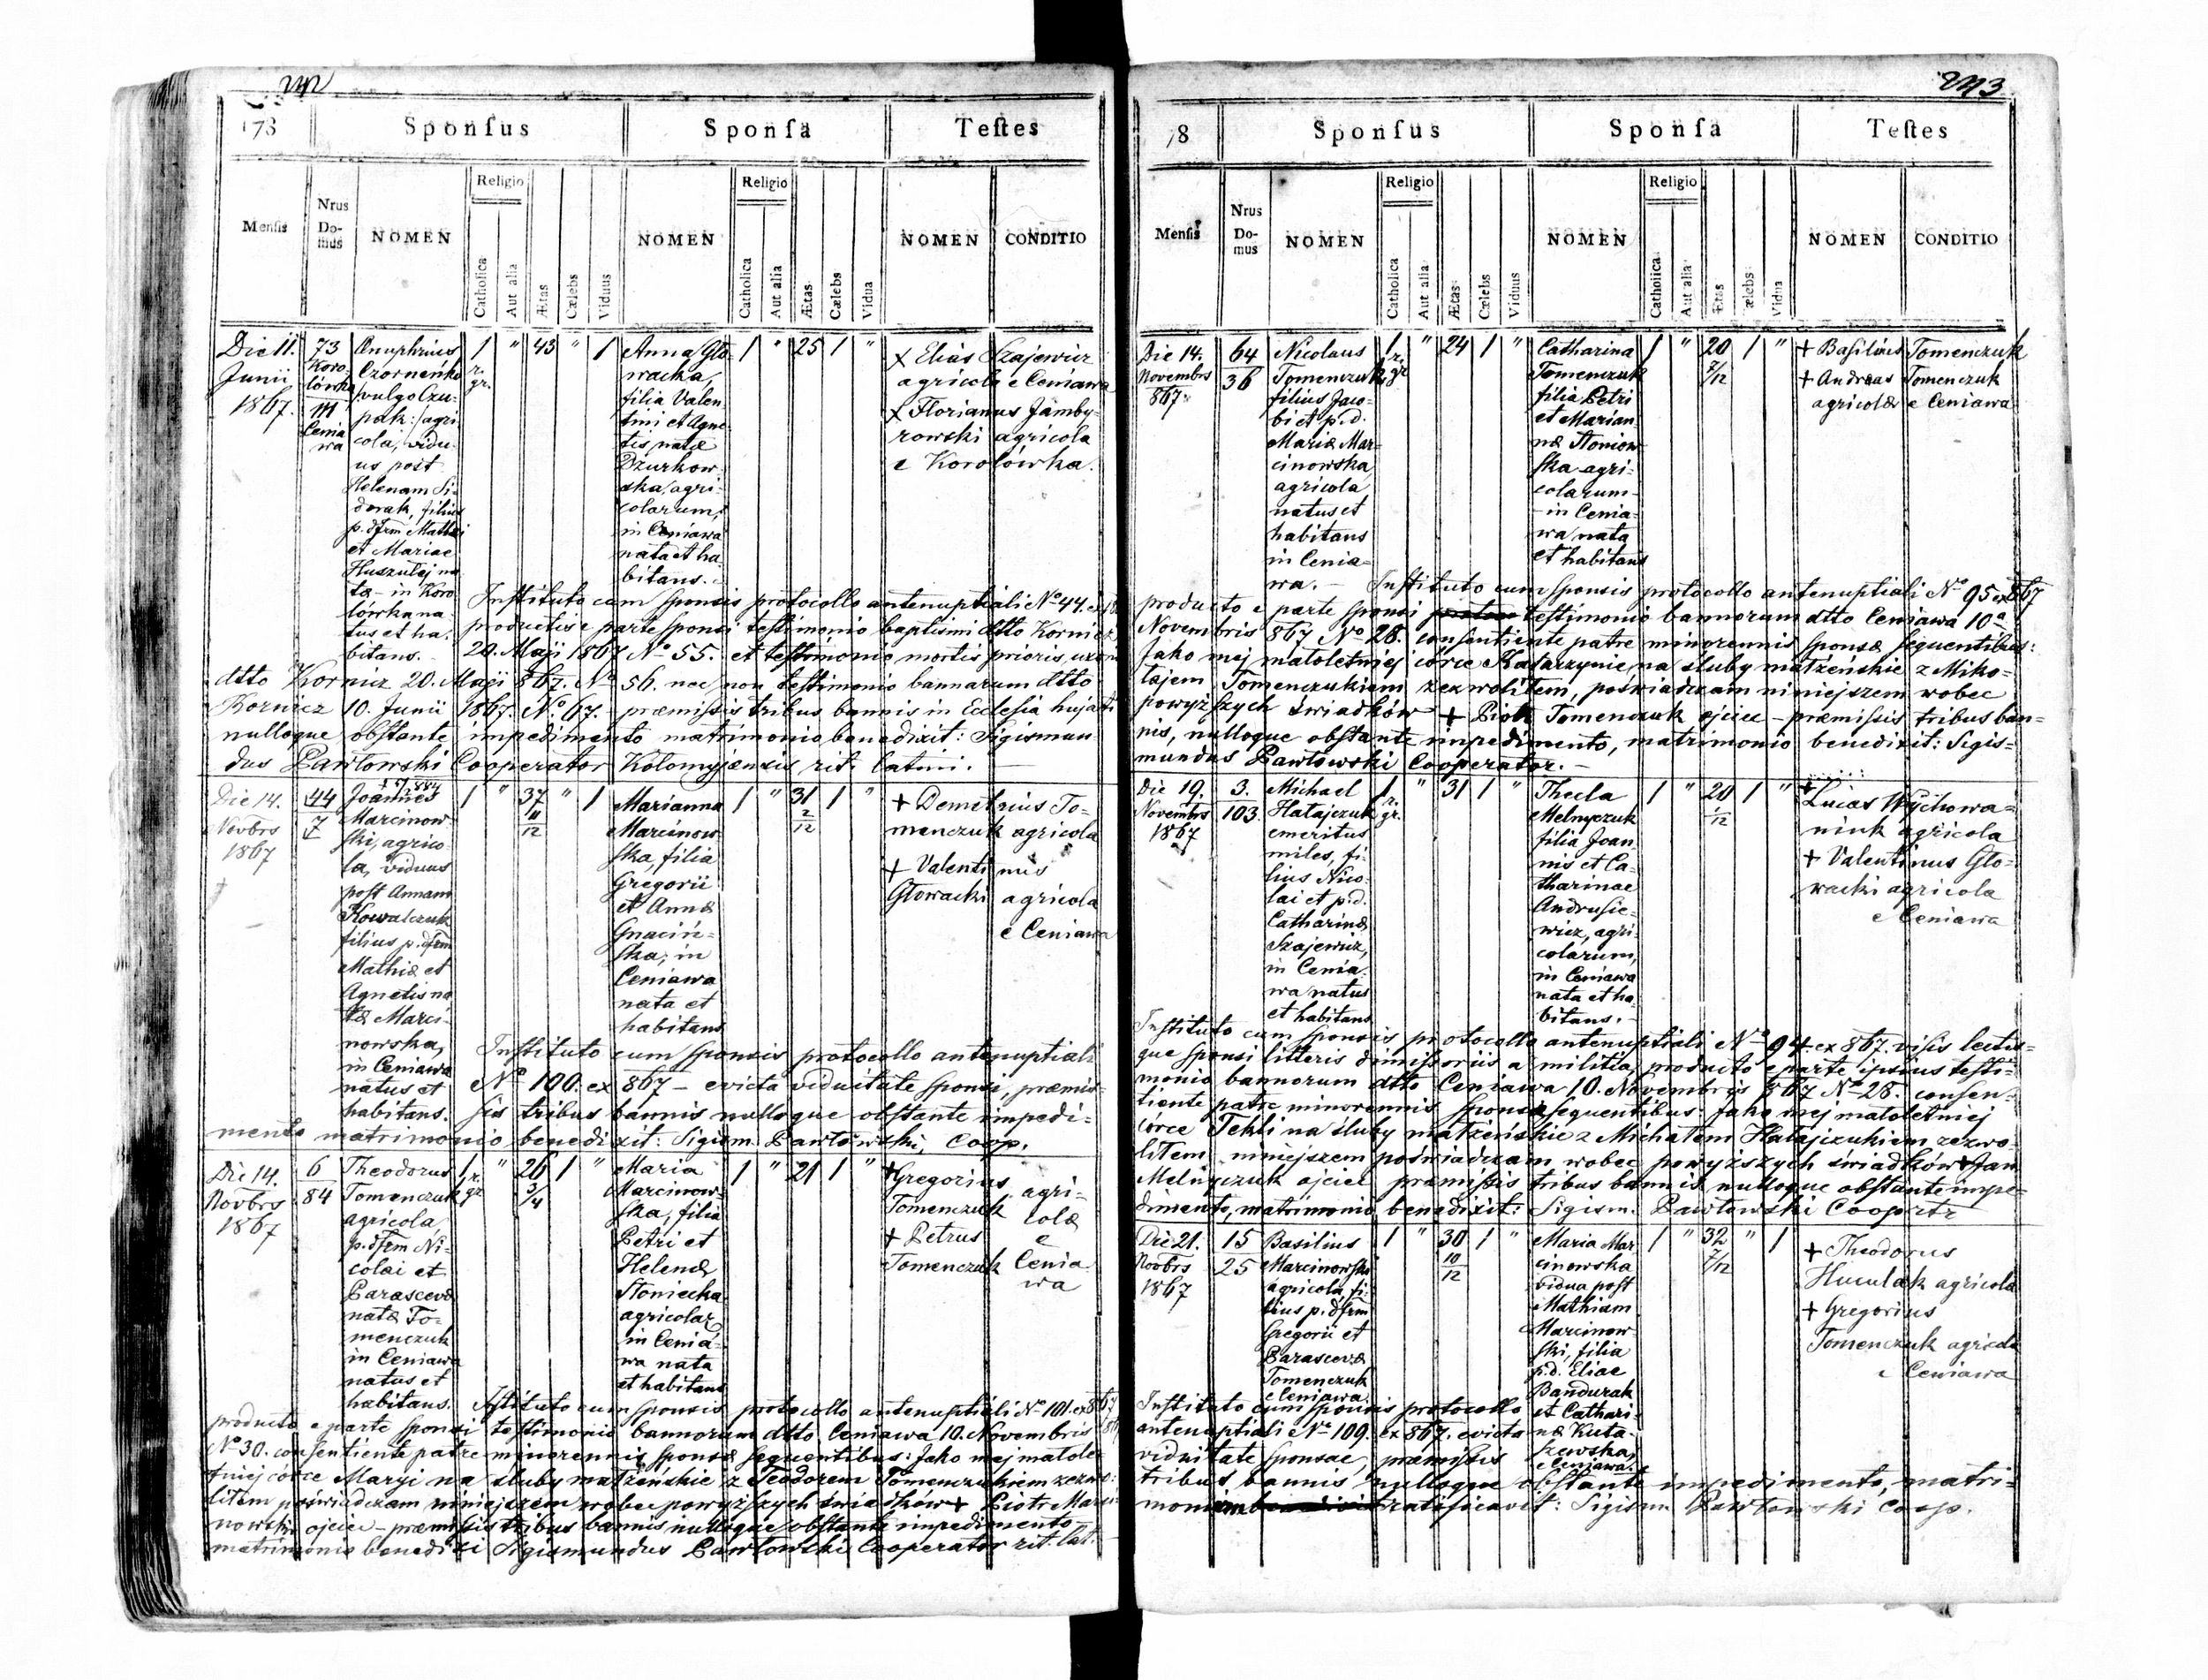 242
173 Sponsus Sponsa Testes
Religio Religio
Mensis Nrus Domus NOMEN Catholica Aut alia Ætas Cælebs Viduus NOMEN Catholica Aut alia Ætas Cælebs Vidua NOMEN CONDITIO
Die 11.
Junii
1867.
73
Koro-
lówka
111
Cenia
wa
Onuphrius
vulgo Czu-
pak: agri
cola, vidu-
us post
Helenam Si-
dorak, filius
p. dfrm Mathei
et Mariae
in Koro
lówka na
tus et ha-
bitans.
1 r. gr. " 43 " 1
Anna Glo-
wacka,
filia Valen-
tini et Agne-
tis natæ
Dzurkow-
ska, agri-
colarum,
in Ceniawa
nata et ha-
bitans.
1 " 25 1 "
x Elias Szajewicz
agricola e Ceniawa
x Florianus Jamby-
rowski agricola
e Korolówka.
Instituto cum sponsis protocollo antenuptiali No 44.
productis e parte sponsi testimonio baptismi dtto Kornicz
20. Maji 1867 No 55. et testimonio mortis prioris uxoris
dtto Kornicz 20. Maji 867. No 56. nec non testimonio bannorum dtto
Kornicz 10. Junii 1867. No. 67. præmissis tribus bannis in Ecclesia
nulloque obstante impedimento matrimonio benedixit: Sigismun
dus Pawłowski Cooperator Kolomyjensis rit. latini.
Die 14.
Novbrs
1867
44
7
Joannes
Marcinow
ski, agrico
la, viduus
post Annam
Kowalczuk
filius p. dfrm
Mathiæ et
Agnetis na
tæ Marci-
nowska,
in Ceniawa
natus et
habitans.
1 " 37 11/12 " 1
Marianna
Marcinow-
ska, filia
Gregorii
et Annæ
Gnaciń-
ska, in
Ceniawa
nata et
habitans
1 " 31 2/12 1 "
+ Demetrius To-
menczuk agricola
+ Valentinus
Głowacki agricola
e Ceniawa
Instituto cum sponsis protocollo antenuptiali
No 100. ex 867 - evicta viduitate sponsi, præmis-
sis tribus bannis nulloque obstante impedi-
mento matrimonio benedixit: Sigism. Pawłowski, Coop.
Die 14.
Novbrs
1867
6
84
Theodorus
Tomenczuk
agricola
p. dfrm Ni-
colai et
Parascevæ
natæ To-
menczuk
in Ceniawa
natus et
habitans.
1 r. gr " 26 3/4 1 "
Maria
Marcinow-
ska, filia
Petri et
Helenæ
Słoniecka
agricolar
in Cenia-
wa nata
et habitans
1 " 21 1 "
+ Gregorius
Tomenczuk
+ Petrus
Tomenczuk
agri-
colæ
e
Cenia
wa
Istituto cum sponsis protocollo antenuptiali No 101. ex 867
producto e parte sponsi testimonio bannorum dtto Ceniawa 10. Novembris
No 30. consentiente patre minorennis sponsæ sequentibus: Jako mej małole-
tniej córce Maryi na śluby małżeńskie z Teodorem Tomenczukiem zezwo-
liłem poświadczam niniejszem wobec powyższych świadków + Piotr Marci-
nowski ojciec - præmissis tribus bannis nulloque obstante impedimento -
matrimonio benedixi Sigismundus Pawłowski Cooperator rit. lat.
243
78 Sponsus Sponsa Testes
Religio Religio
Mensis Nrus Domus NOMEN Catholica Aut alia Ætas Cælebs Viduus NOMEN Catholica Aut alia Ætas Cælebs Vidua NOMEN CONDITIO
Die 14.
Novembrs
867
64
36
Nicolaus
Tomenczuk
filius Jaco-
bi et p. d.
Mariæ Mar-
cinowska
agricola
natus et
habitans
in Cenia-
wa.
1 r. gr " 24 1 "
Catharina
Tomenczuk
filia Petri
et Marian-
næ Słoniow
ska agri-
colarum
in Cenia-
wa nata
et habitans
1 " 20 7/12 1 "
+ Basilius Tomenczuk
+ Andreas Tomenczuk
agricolæ e Ceniawa
Instituto cum sponsis protocollo antenuptiali No 95 ex 867
producto e parte sponsi testimonio bannorum dtto Ceniawa 10a
Novembris 867 No 28. consentiente patre minorennis sponsæ sequentibus:
Jako mej małoletniej córce Katarzynie, na śluby małżeńskie z Miko-
łajem Tomenczukiem zezwoliłem, poświadczam niniejszem wobec
powyższych świadków + Piotr Tomenczuk ojciec - præmissis tribus ban-
nis, nulloque obstante impedimento, matrimonio benedixit: Sigis-
mundus Pawłowski Cooperator.
Die 19.
Novembrs
1867
3.
103.
Michael
Hałajczuk
emeritus
miles, fi-
lius Nico-
lai et p. d.
Catharinæ
Szajewicz,
in Cenia-
wa natus
et habitans
1 r. gr. " 31 1 "
Thecla
Melnyczuk
filia Joan-
nis et Ca-
tharinae
Andrusie-
wicz, agri-
colarum,
in Ceniawa
nata et ha-
bitans.
1 " 20 1/12 1 "
+ Lucas Wychowa-
niuk agricola
+ Valentinus Glo-
wacki agricola
e Ceniawa
Instituto cum sponsis protocollo antenuptiali No 94. ex 867. visis lectis-
que sponsi litteris dimissoriis a militia, producto e parte ipsius testi-
monio bannorum dtto Ceniawa 10. Novembris 867 No 28. consen-
tiente patre minorennis sponsæ sequentibus: Jako mej małoletniej
córce Tekli na śluby małżeńskie z Michałem Hałajczukiem zezwo-
liłem niniejszem poświadczam wobec powyższych świadków + Jan
Melnyczuk ojciec præmissis tribus bannis nulloque obstante impe-
dimento, matrimonio benedixit: Sigism. Pawłowski Coopertr
Die 21.
Novbrs
1867
15
25
Basilius
Marcinowski
agricola, fi-
lius p. dfrm
Gregorii et
Parascevæ
Tomenczuk
e Ceniawa
1 " 30 10/12 1 "
Maria Mar
cinowska
vidua post
Mathiam
Marcinow
ski, filia
p. d. Eliae
Bandurak
et Cathari-
næ Kuta-
szewska,
e Ceniawa.
1 " 32 7/12 " 1
+ Theodorus
Huculak agricola
+ Gregorius
Tomenczuk agricola
e Ceniawa
Instituto cum sponsis protocollo
antenuptiali No 109. ex 867. evicta
viduitate sponsae, præmissis
tribus bannis nulloque obstante impedimento, matri-
monium ratificavit: Sigism Pawłowski Coop.